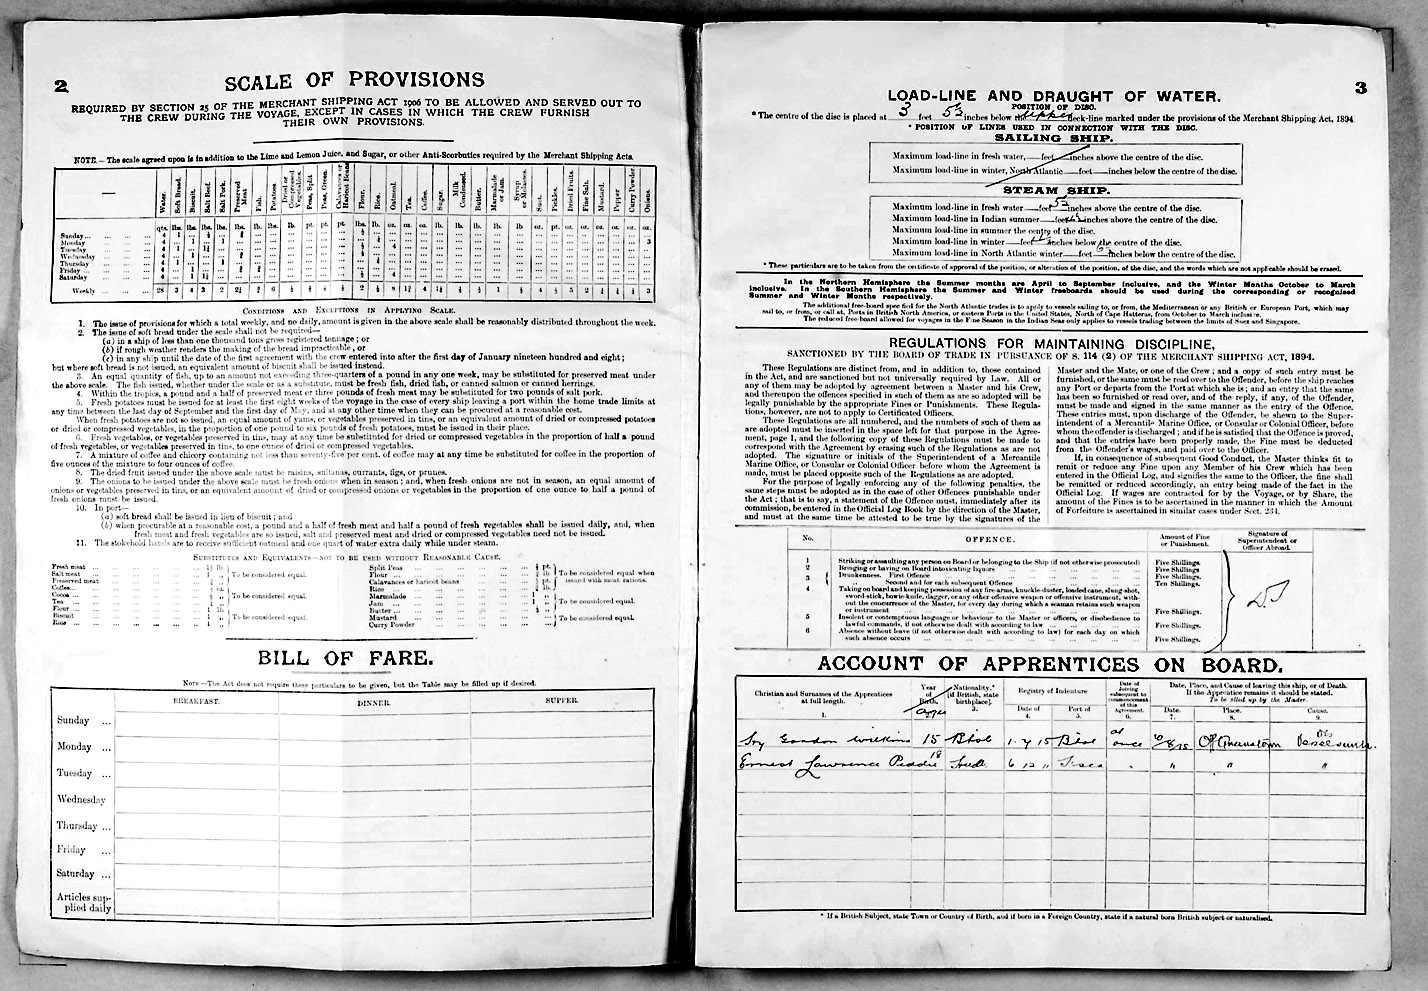 2
SCALE OF PROVISIONS
REQUIRED BY SECTION 25 OF THE MERCHANT SHIPPING ACT 1906 TO BE ALLOWED AND SERVED OUT TO
THE CREW DURING THE VOYAGE, EXCEPT IN CASES IN WHICH THE CREW FURNISH
THEIR OWN PROVISIONS.
NOTE.—The scale agreed upon is in addition to the Lime and Lemon Juice, and Sugar, or other Anti-Scorbutics required by the Merchant Shipping Acts.
Water. Soft Bread. Biscuit. Salt Beef. Salt Pork. Preserved Meat. Fish. Potatoes. Dried or Compressed Vegetables. Peas, Split. Peas, Green. Calavances or Haricot Beans. Flour. Rice. Oatmeal. Tea. Coffee. Sugar. Milk Condensed. Butter. Marmalade or Jam. Syrup or Molasses. Suet. Pickles. Dried Fruits. Fine Salt. Mustard. Pepper. Curry Powder. Onions.
Sunday
Monday
Tuesday
Wednesday
Thursday
Friday
Saturday
Weekly
CONDITIONS AND EXCEPTIONS IN APPLYING SCALE.
1. The issue of provisions for which a total weekly, and no daily, amount is given in the above scale shall be reasonably distributed throughout the week.
2. The issue of soft bread under the scale shall not be required—
(a) in a ship of less than one thousand tons gross registered tonnage; or
(b) if rough weather renders the making of the bread impracticable, or
(c) in any ship until the date of the first agreement with the crew entered into after the first day of January nineteen hundred and eight;
but where soft bread is not issued, an equivalent amount of biscuit shall be issued instead.
3. An equal quantity of fish, up to an amount not exceeding three-quarters of a pound in any one week, may be substituted for preserved meat under
the above scale. The fish issued, whether under the scale or as a substitute, must be fresh fish, dried fish, or canned salmon or canned herrings.
4. Within the tropics, a pound and a half of preserved meat or three pounds of fresh meat may be substituted for two pounds of salt pork.
5. Fresh potatoes must be issued for at least the first eight weeks of the voyage in the case of every ship leaving a port within the home trade limits at
any time between the last day of September and the first day of May, and at any other time when they can be procured at a reasonable cost.
When fresh potatoes are not so issued, an equal amount of yams, or vegetables preserved in tins, or an equivalent amount of dried or compressed potatoes
or dried or compressed vegetables, in the proportion of one pound to six pounds of fresh potatoes, must be issued in their place.
6. Fresh vegetables, or vegetables preserved in tins, may at any time be substituted for dried or compressed vegetables in the proportion of half a pound
of fresh vegetables, or vegetables preserved in tins, to one ounce of dried or compressed vegetables.
7. A mixture of coffee and chicory containing not less than seventy-five per cent. of coffee may at any time be substituted for coffee in the proportion of
five ounces of the mixture to four ounces of coffee.
8. The dried fruit issued under the above scale must be raisins, sultanas, currants, figs, or prunes.
9. The onions to be issued under the above scale must be fresh onions when in season; and, when fresh onions are not in season, an equal amount of
onions or vegetables preserved in tins, or an equivalent amount of dried or compressed onions or vegetables in the proportion of one ounce to half a pound of
fresh onions must be issued.
10. In port—
(a) soft bread shall be issued in lieu of biscuit; and
(b) when procurable at a reasonable cost, a pound and a half of fresh meat and half a pound of fresh vegetables shall be issued daily, and, when
fresh meat and fresh vegetables are so issued, salt and preserved meat and dried or compressed vegetables need not be issued.
11. The stokehold hands are to receive sufficient oatmeal and one quart of water extra daily while under steam.
SUBSTITUTES AND EQUIVALENTS—NOT TO BE USED WITHOUT REASONABLE CAUSE.
Fresh meat
Salt meat
Preserved meat
To be considered equal.
Coffee
Cocoa
Tea
To be considered equal.
Flour
Biscuit
Rice
To be considered equal.
Split Peas
Flour
Calavances or haricot beans
Rice
To be considered equal when issued with meat rations.
Marmalade
Jam
Butter
To be considered equal.
Mustard
Curry Powder
To be considered equal.
BILL OF FARE.
NOTE—The Act does not require these particulars to be given, but the Table may be filled up if desired.
BREAKFAST. DINNER. SUPPER.
Sunday ...
Monday ...
Tuesday ...
Wednesday
Thursday ...
Friday ...
Saturday ...
Articles sup-
plied daily
3
LOAD-LINE AND DRAUGHT OF WATER.
POSITION OF DISC.
* The centre of the disc is placed at 3 feet 5½ inches below the upper deck-line marked under the provisions of the Merchant Shipping Act, 1894
* POSITION OF LINES USED IN CONNECTION WITH THE DISC.
SAILING SHIP.
Maximum load-line in fresh water, feet inches above the centre of the disc.
Maximum load-line in winter, North Atlantic feet inches below the centre of the disc.
STEAM SHIP.
Maximum load-line in fresh water feet inches above the centre of the disc.
Maximum load-line in Indian summer feet inches above the centre of the disc.
Maximum load-line in summer the centre of the disc.
Maximum load-line in winter feet inches below the centre of the disc.
Maximum load-line in North Atlantic winter feet inches below the centre of the disc.
* These particulars are to be taken from the certificate of approval of the position, or alteration of the position, of the disc, and the words which are not applicable should be erased.
In the Northern Hemisphere the Summer months are April to September inclusive, and the Winter Months October to March
inclusive. In the Southern Hemisphere the Summer and Winter freeboards should be used during the corresponding or recognised
Summer and Winter Months respectively.
The additional free-board specified for the North Atlantic trades is to apply to vessels sailing to, or from, the Mediterranean or any British or European Port, which may
sail to, or from, or call at, Ports in British North America, or eastern Ports in the United States, North of Cape Hatteras, from October to March inclusive.
The reduced free-board allowed for voyages in the Fine Season in the Indian Seas only applies to vessels trading between the limits of Suez and Singapore.
REGULATIONS FOR MAINTAINING DISCIPLINE,
SANCTIONED BY THE BOARD OF TRADE IN PURSUANCE OF S. 114 (2) OF THE MERCHANT SHIPPING ACT, 1894.
These Regulations are distinct from, and in addition to, those contained
in the Act, and are sanctioned but not universally required by Law. All or
any of them may be adopted by agreement between a Master and his Crew,
and thereupon the offences specified in such of them as are so adopted will be
legally punishable by the appropriate Fines or Punishments. These Regula-
tions, however, are not to apply to Certificated Officers.
These Regulations are all numbered, and the numbers of such of them as
are adopted must be inserted in the space left for that purpose in the Agree-
ment, page 1, and the following copy of these Regulations must be made to
correspond with the Agreement by erasing such of the Regulations as are not
adopted. The signature or initials of the Superintendent of a Mercantile
Marine Office, or Consular or Colonial Officer before whom the Agreement is
made, must be placed opposite such of the Regulations as are adopted.
For the purpose of legally enforcing any of the following penalties, the
same steps must be adopted as in the case of other Offences punishable under
the Act; that is to say, a statement of the Offence must, immediately after its
commission, be entered in the Official Log Book by the direction of the Master,
and must at the same time be attested to be true by the signatures of the
Master and the Mate, or one of the Crew; and a copy of such entry must be
furnished, or the same must be read over to the Offender, before the ship reaches
any Port or departs from the Port at which she is; and an entry that the same
has been so furnished or read over, and of the reply, if any, of the Offender,
must be made and signed in the same manner as the entry of the Offence.
These entries must, upon discharge of the Offender, be shewn to the Super-
intendent of a Mercantile Marine Office, or Consular or Colonial Officer, before
whom the offender is discharged; and if he is satisfied that the Offence is proved,
and that the entries have been properly made, the Fine must be deducted
from the Offender's wages, and paid over to the Officer.
If, in consequence of subsequent Good Conduct, the Master thinks fit to
remit or reduce any Fine upon any Member of his Crew which has been
entered in the Official Log, and signifies the same to the Officer, the fine shall
be remitted or reduced accordingly, an entry being made of the fact in the
Official Log. If wages are contracted for by the Voyage, or by Share, the
amount of the Fines is to be ascertained in the manner in which the Amount
of Forfeiture is ascertained in similar cases under Sect. 234.
No. OFFENCE. Amount of Fine or Punishment. Signature of Superintendent or Officer Abroad.
1 Striking or assaulting any person on Board or belonging to the Ship (if not otherwise prosecuted) Five Shillings.
2 Bringing or having on Board intoxicating liquors Five Shillings
3 Drunkenness. First Offence Five Shillings.
Second and for each subsequent Offence Ten Shillings.
4 Taking on board and keeping possession of any fire-arms, knuckle-duster, loaded cane, slung-shot,
sword-stick, bowie-knife, dagger, or any other offensive weapon or offensive instrument, with-
out the concurrence of the Master, for every day during which a seaman retains such weapon
or instrument Five Shillings.
5 Insolent or contemptuous language or behaviour to the Master or officers, or disobedience to
lawful commands, if not otherwise dealt with according to law Five Shillings.
6 Absence without leave (if not otherwise dealt with according to law) for each day on which
such absence occurs Five Shillings.
ACCOUNT OF APPRENTICES ON BOARD.
Christian and Surnames of the Apprentices at full length. 1.
Year of Birth. Age
Nationality.* [if British, state birthplace]. 3.
Registry of Indenture
Date of 4. Port of 5.
Date of Joining subsequent to commencement of this Agreement. 6.
Date, Place, and Cause of leaving this ship, or of Death.
If the Apprentice remains it should be stated.
To be filled up by the Master.
Date. 7. Place. 8. Cause. 9.
Ivy Gordon Wilkins 15 B'tol 1.7 15 B'tol at once 20/8/15 Off Queenstown Vessel sunk.
Ernest Lawrence Peddie 18 6 12 " " " "
* If a British Subject, state Town or Country of Birth, and if born in a Foreign Country, state if a natural born British subject or naturalised.